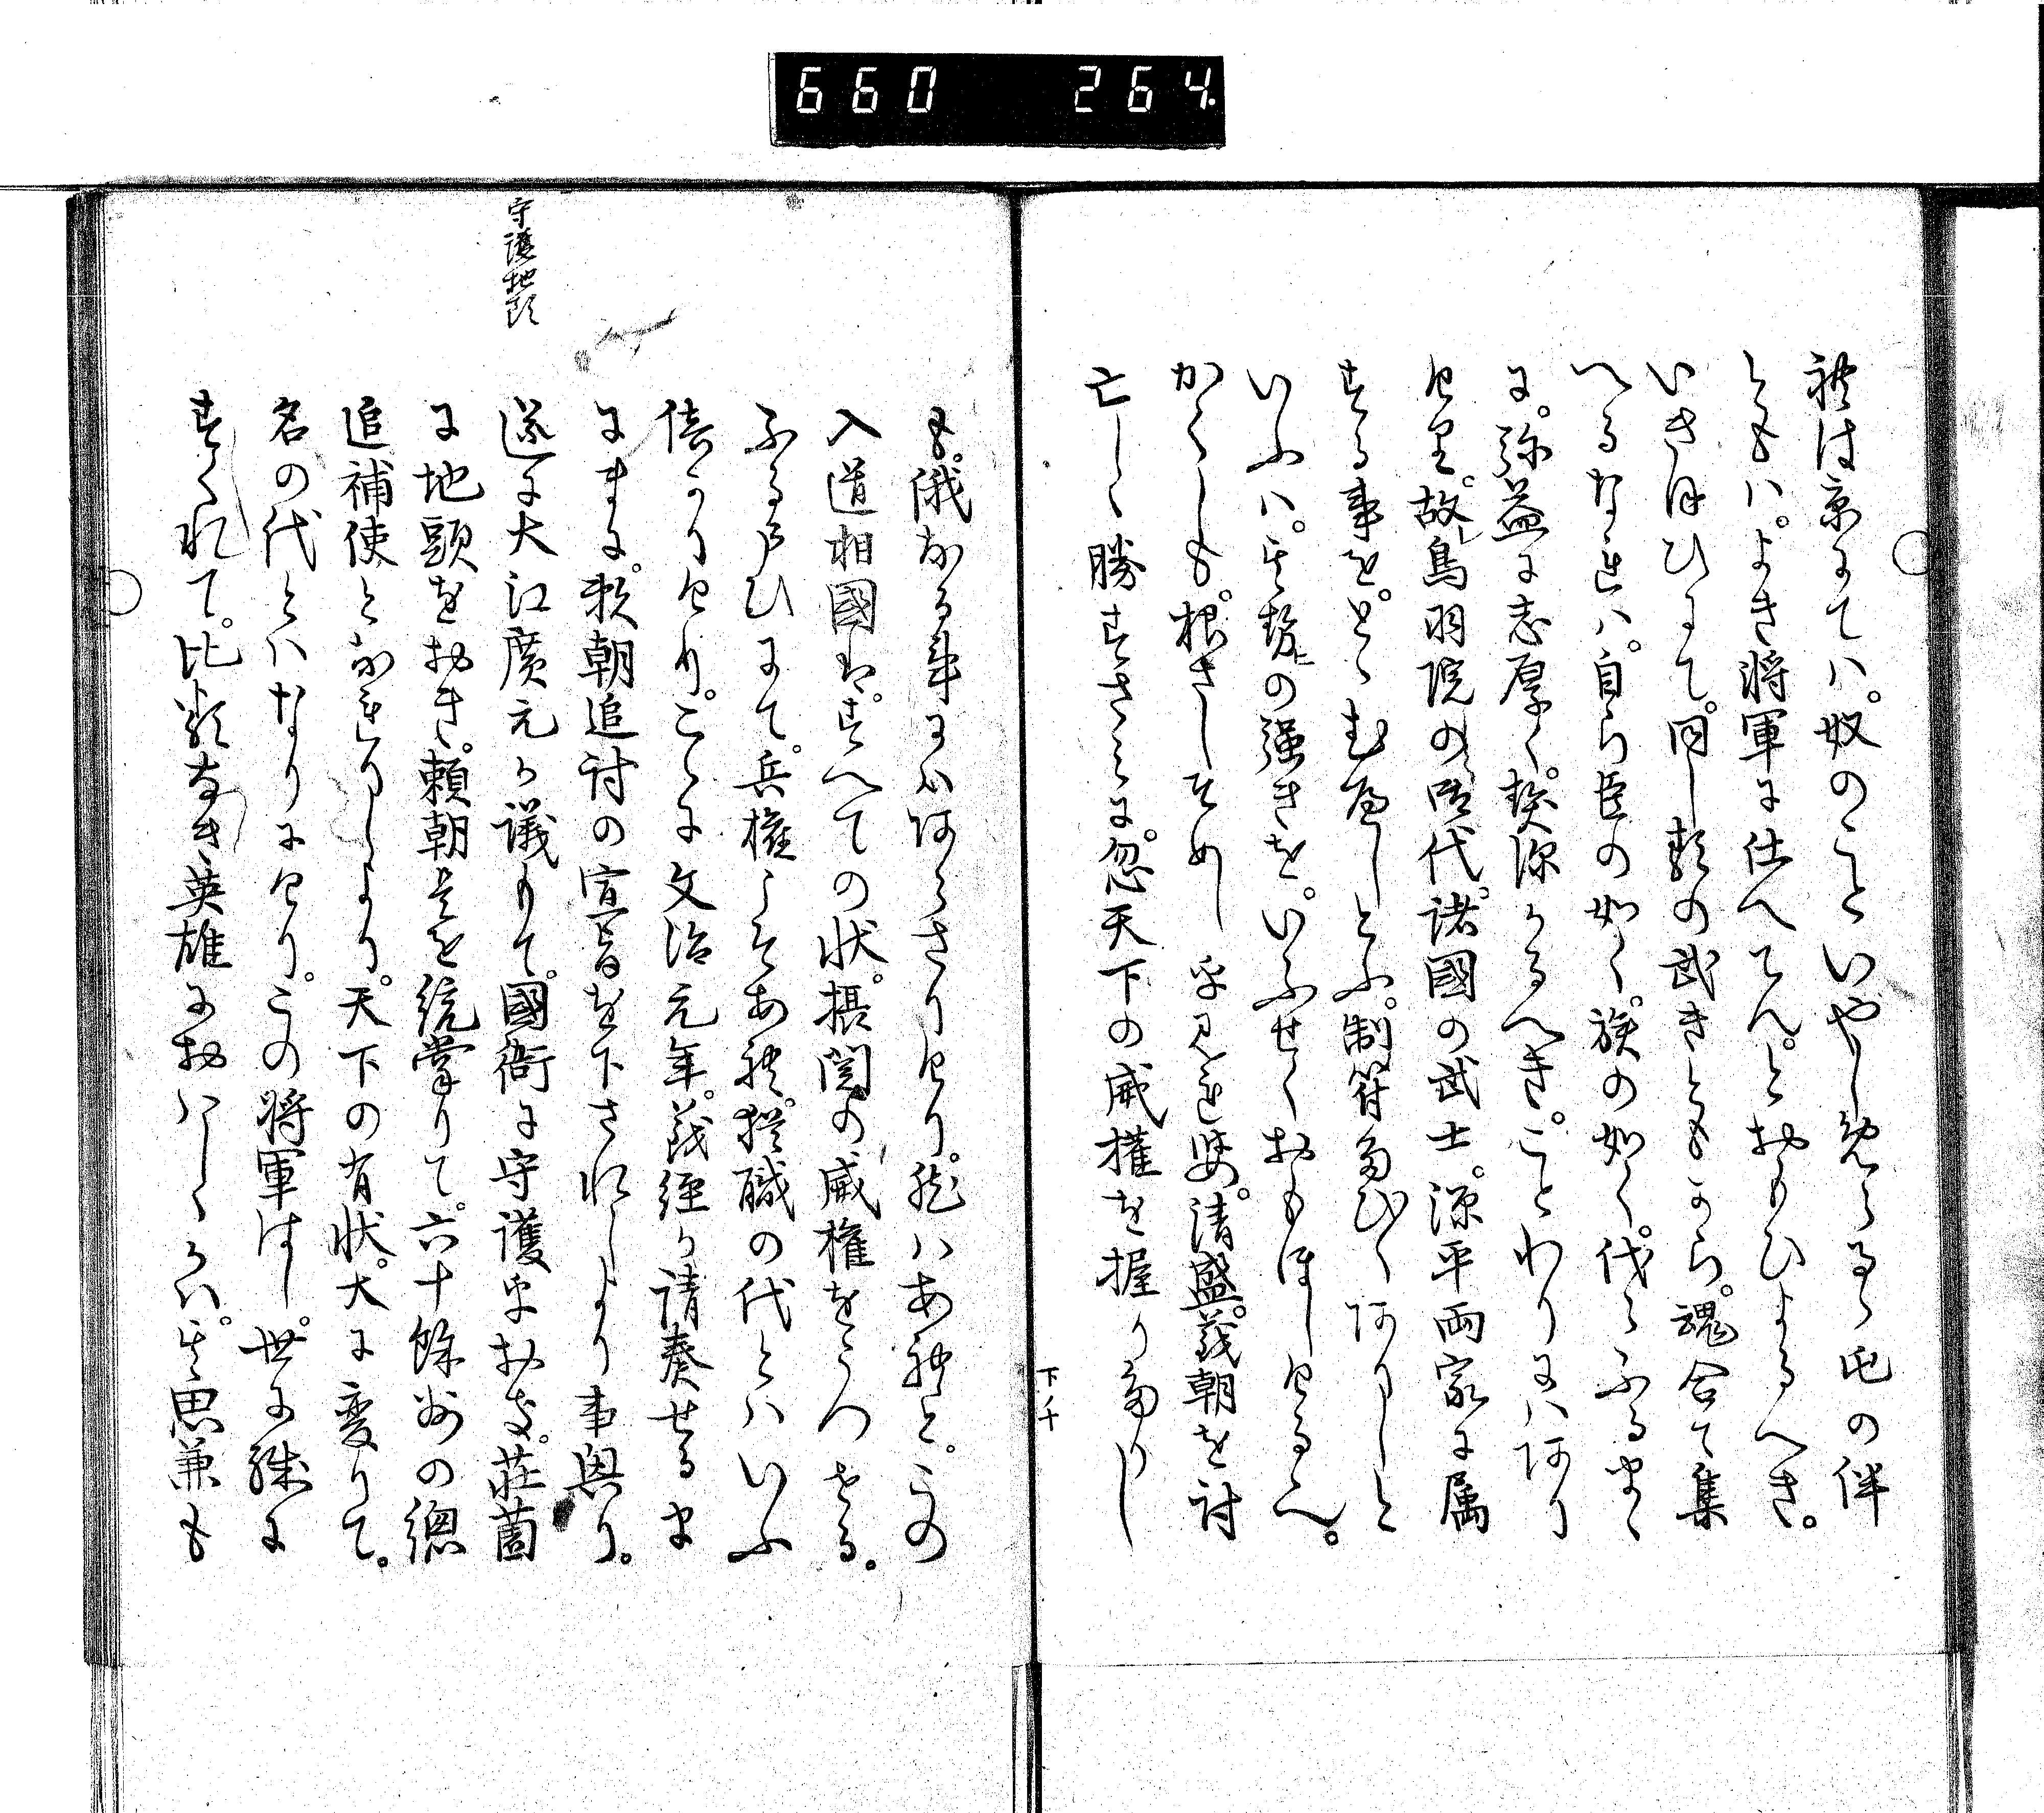 660 264
禄は京にてハ。奴のことといやしめらるゝ屯の伴
ともハ。よき将軍に仕へてん。とおもひよるへき。
いきほひにて。同し類の武きともから。魂合て集
へるなれハ。自ら臣の如く。族の如く。伐ふるまゝ
に。弥益に志厚く。契深かるへき。ことわりにハ阿り
けり。故鳥羽院の御代。諸國の武士。源平両家に属
する事を。とゝむへしとふ。制符たひ〱阿りしと
いふハ。其勢の強きを。いふせくおもほしけるへ。
かくしも。根さしそめし乎見れ婆。清盛。義朝を討
亡しゝ勝すさミに。忽天下の威権を握りたりし
下ノ十
も。俄なる事にハ阿らさりけり。然ハあれと。この
入道相國は。すへての状。摂関の威権をうつせる。
ふるまひにて。兵権こそあれ。猶職の代とハいふ
倍かりけり。こゝに文治元年。義経か請奏せるま
にまに。頼朝追討の宣旨を下されしより事興り。
遂に大江廣元か議もて。國衙に守護乎おき。荘園
に地頭をおき。頼朝是を統掌りて。六十餘州の總
追補使となれりしより。天下の有状。大に変りて。
名の代とハなりにけり。この将軍はし。世に殊に
すくれて。比類なき英雄におハしゝかハ。其思兼も
守護地頭